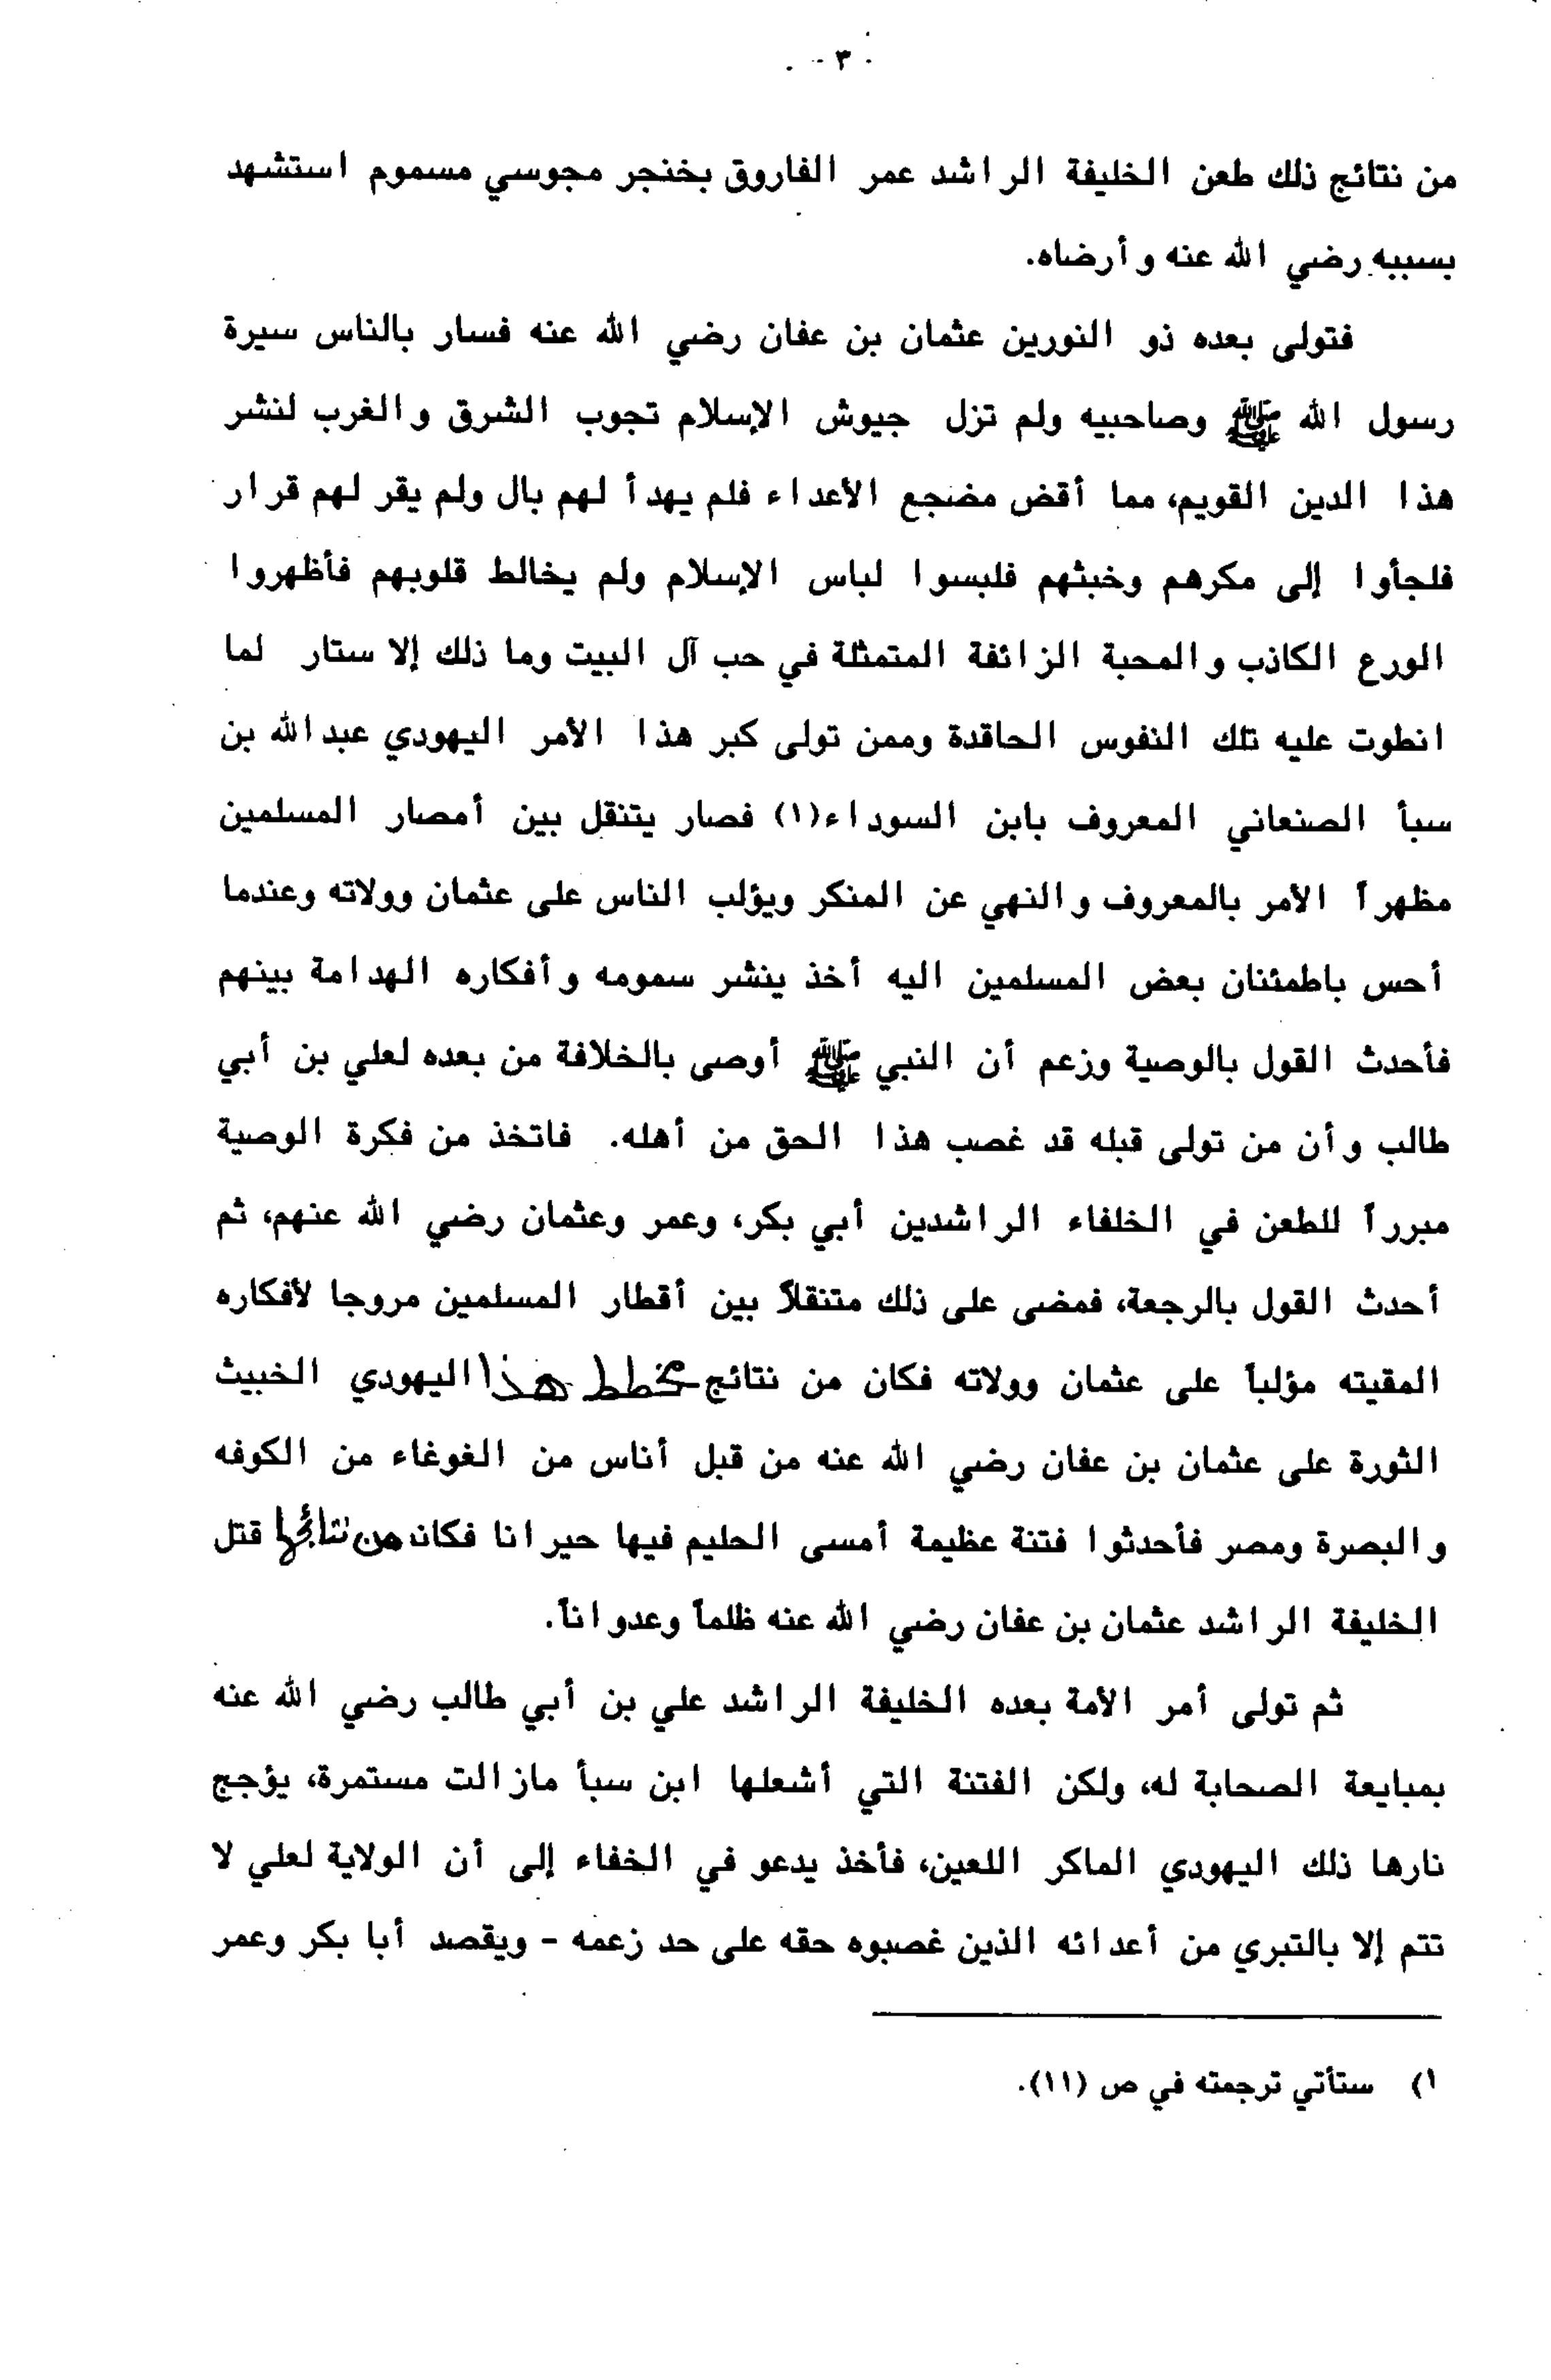 - ٣ -
من نتائج ذلك طعن الخليفة الراشد عمر الفاروق بخنجر مجوسي مسموم استشهد
بسببه رضي الله عنه وأرضاه.
فتولى بعده ذو النورين عثمان بن عفان رضي الله عنه فسار بالناس سيرة
رسول الله ﷺ وصاحبيه ولم تزل جيوش الإسلام تجوب الشرق والغرب لنشر
هذا الدين القويم، مما أقض مضجع الأعداء فلم يهدأ لهم بال ولم يقر لهم قرار
فلجأوا إلى مكرهم وخبثهم فلبسوا لباس الإسلام ولم يخالط قلوبهم فأظهروا
الورع الكاذب والمحبة الزائفة المتمثلة في حب آل البيت وما ذلك إلا ستار لما
انطوت عليه تلك النفوس الحاقدة وممن تولى كبر هذا الأمر اليهودي عبدالله بن
سبأ الصنعاني المعروف بابن السوداء(١) فصار يتنقل بين أمصار المسلمين
مظهراً الأمر بالمعروف والنهي عن المنكر ويؤلب الناس على عثمان وولاته وعندما
أحس باطمئنان بعض المسلمين اليه أخذ ينشر سمومه وأفكاره الهدامة بينهم
فأحدث القول بالوصية وزعم أن النبي ﷺ أوصى بالخلافة من بعده لعلي بن أبي
طالب وأن من تولى قبله قد غصب هذا الحق من أهله. فاتخذ من فكرة الوصية
مبرراً للطعن في الخلفاء الراشدين أبي بكر، وعمر وعثمان رضي الله عنهم، ثم
أحدث القول بالرجعة، فمضى على ذلك متنقلاً بين أقطار المسلمين مروجا لأفكاره
المقيته مؤلباً على عثمان وولاته فكان من نتائج مخطط هذا اليهودي الخبيث
الثورة على عثمان بن عفان رضي الله عنه من قبل أناس من الغوغاء من الكوفه
والبصرة ومصر فأحدثوا فتنة عظيمة أمسى الحليم فيها حيرانا فكان من نتائجها قتل
الخليفة الراشد عثمان بن عفان رضي الله عنه ظلماً وعدواناً.
ثم تولى أمر الأمة بعده الخليفة الراشد علي بن أبي طالب رضي الله عنه
بمبايعة الصحابة له، ولكن الفتنة التي أشعلها ابن سبأ مازالت مستمرة، يؤجج
نارها ذلك اليهودي الماكر اللعين، فأخذ يدعو في الخفاء إلى أن الولاية لعلي لا
تتم إلا بالتبري من أعدائه الذين غصبوه حقه على حد زعمه - ويقصد أبا بكر وعمر
١) ستأتي ترجمته في ص (١١).